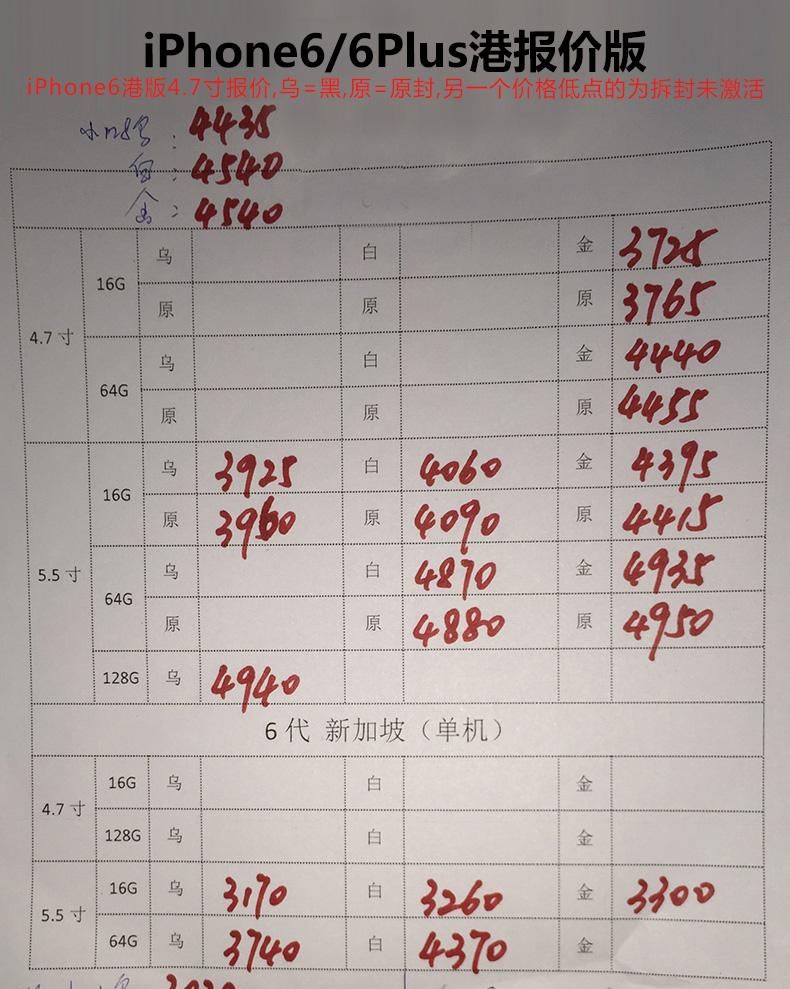 iPhone6/6Plus港报价版
iPhone6港版4.7寸报价,乌=黑,原=原封,另一个价格低点的为拆封未激活
小128乌:4435
白:4540
金:4540
4.7寸 16G 乌 白 金 3725
原 原 原 3765
64G 乌 白 金 4440
原 原 原 4455
5.5寸 16G 乌 3925 白 4060 金 4395
原 3960 原 4090 原 4415
64G 乌 白 4870 金 4935
原 原 4880 原 4950
128G 乌 4940
6代 新加坡(单机)
4.7寸 16G 乌 白 金
128G 乌 白 金
5.5寸 16G 乌 3170 白 3260 金 3300
64G 乌 3740 白 4370 金